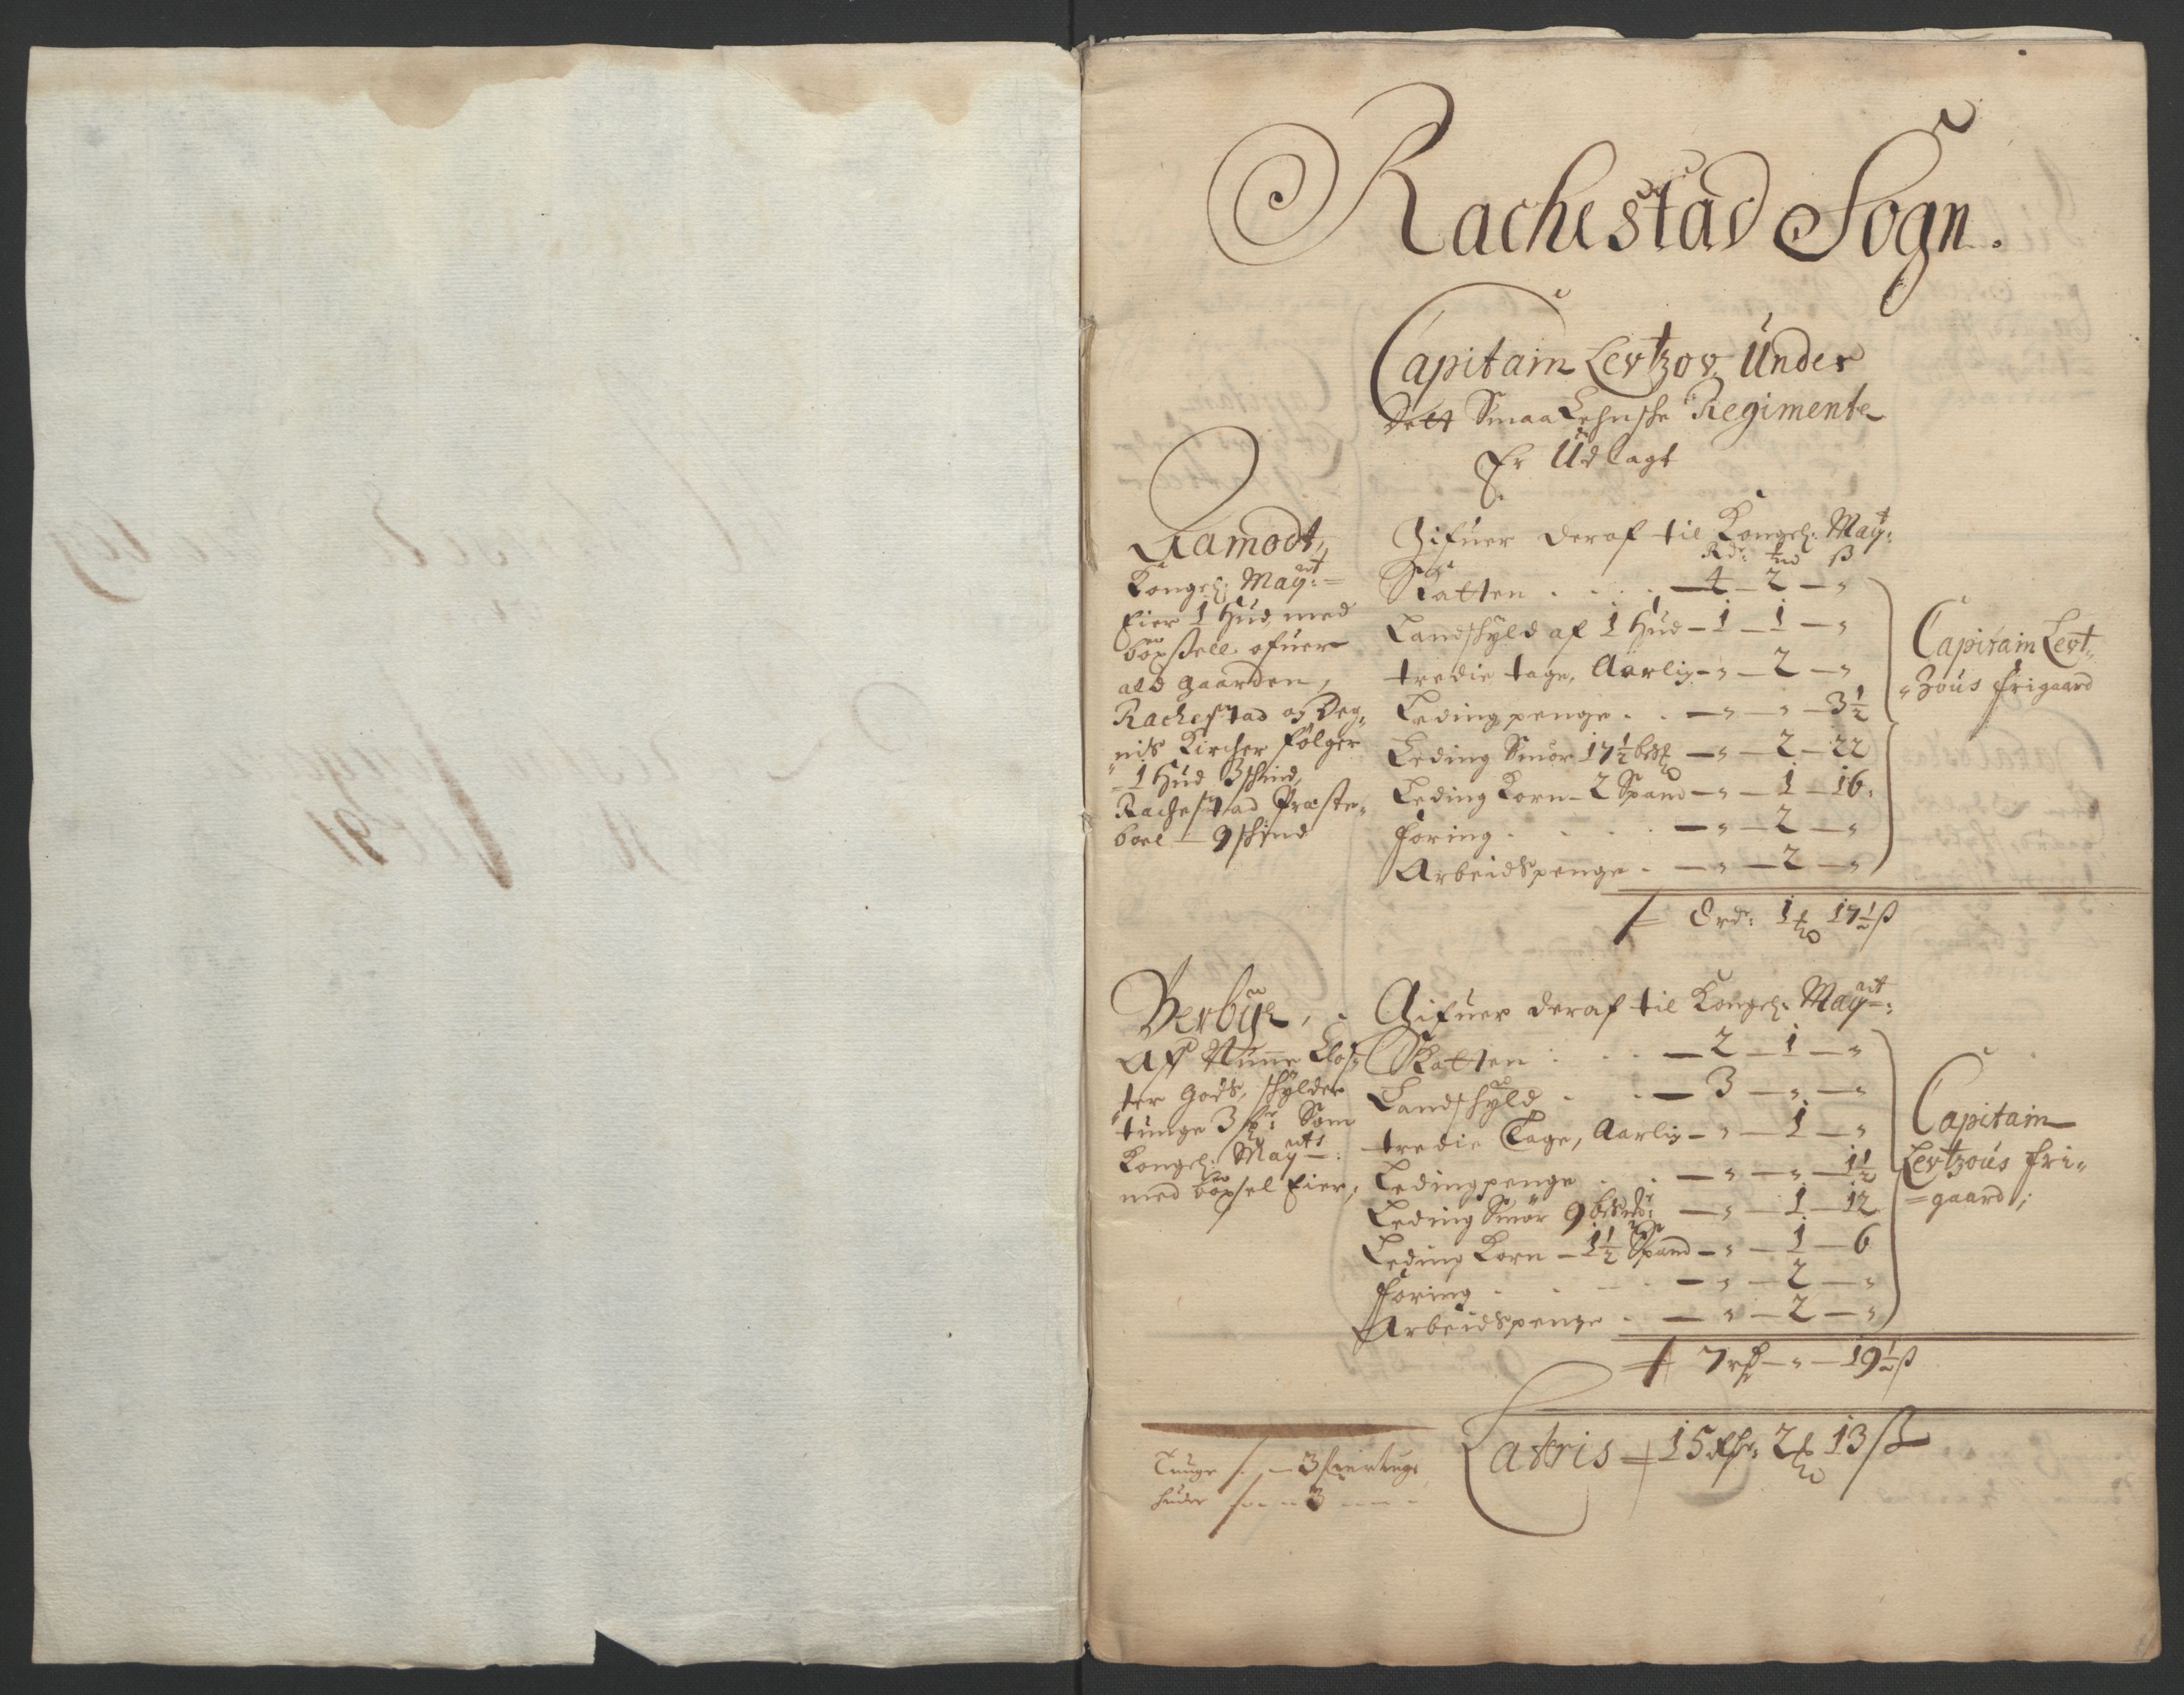 Rachestad Sogn.
Capitain Levtzov Under
dett Smaa Lehnsche Regimente
Er Udlagt
Aamodt,
Kongel: Mayt:
Eier 1 Hud, med
böxsell ofuer
ald gaarden,
Rachestad og Deg„
nis Kircher følger
1 Hud 3 schind,
Rachestad Præste„
boel — 9 schind
Gifuer deraf til Kongel: Mayt:
Rdr: ß
Skatten . . . — 4 — 2 — „
Landschyld af 1 Hud — 1 — 1 — „
tredie tage, Aarlig — „ — 2 — „
Leding penge . . — „ — „ — 3½
Leding Smör 17½ — „ — 2 — 22
Leding Korn — 2 Spand — „ — 1 — 16:
Foring . . . — „ — 2 — „
Arbeidspenge . — „ — 2 — „
Capitain Levt„
„zous frigaard
8 rdr: 1 17½ ß
Verbye,
Aff Nunne Clos„
„ter Gods, schylder
tunge 3 Som
Kongel: Mayts:
med böxsel Eier,
Gifuer deraf til Kongel: Mayt:
Skatten . . . — 2 — 1 — „
Landschyld . . — 3 — „ — „
tredie Tage, Aarlig — „ — 1 — „
Leding penge . . — „ — „ — 1½
Leding Smör 9 — „ — 1 — 12
Leding Korn — 1½ Spand — „ — 1 — 6
Foring . . . — „ — 2 — „
Arbeidspenge . — „ — 2 — „
Capitain
Levtzous fri„
=gaard;
7 — „ — 19½ ß
Lateris 15 Rdr: 2 13 ß
Tunge — 3
huder — 3